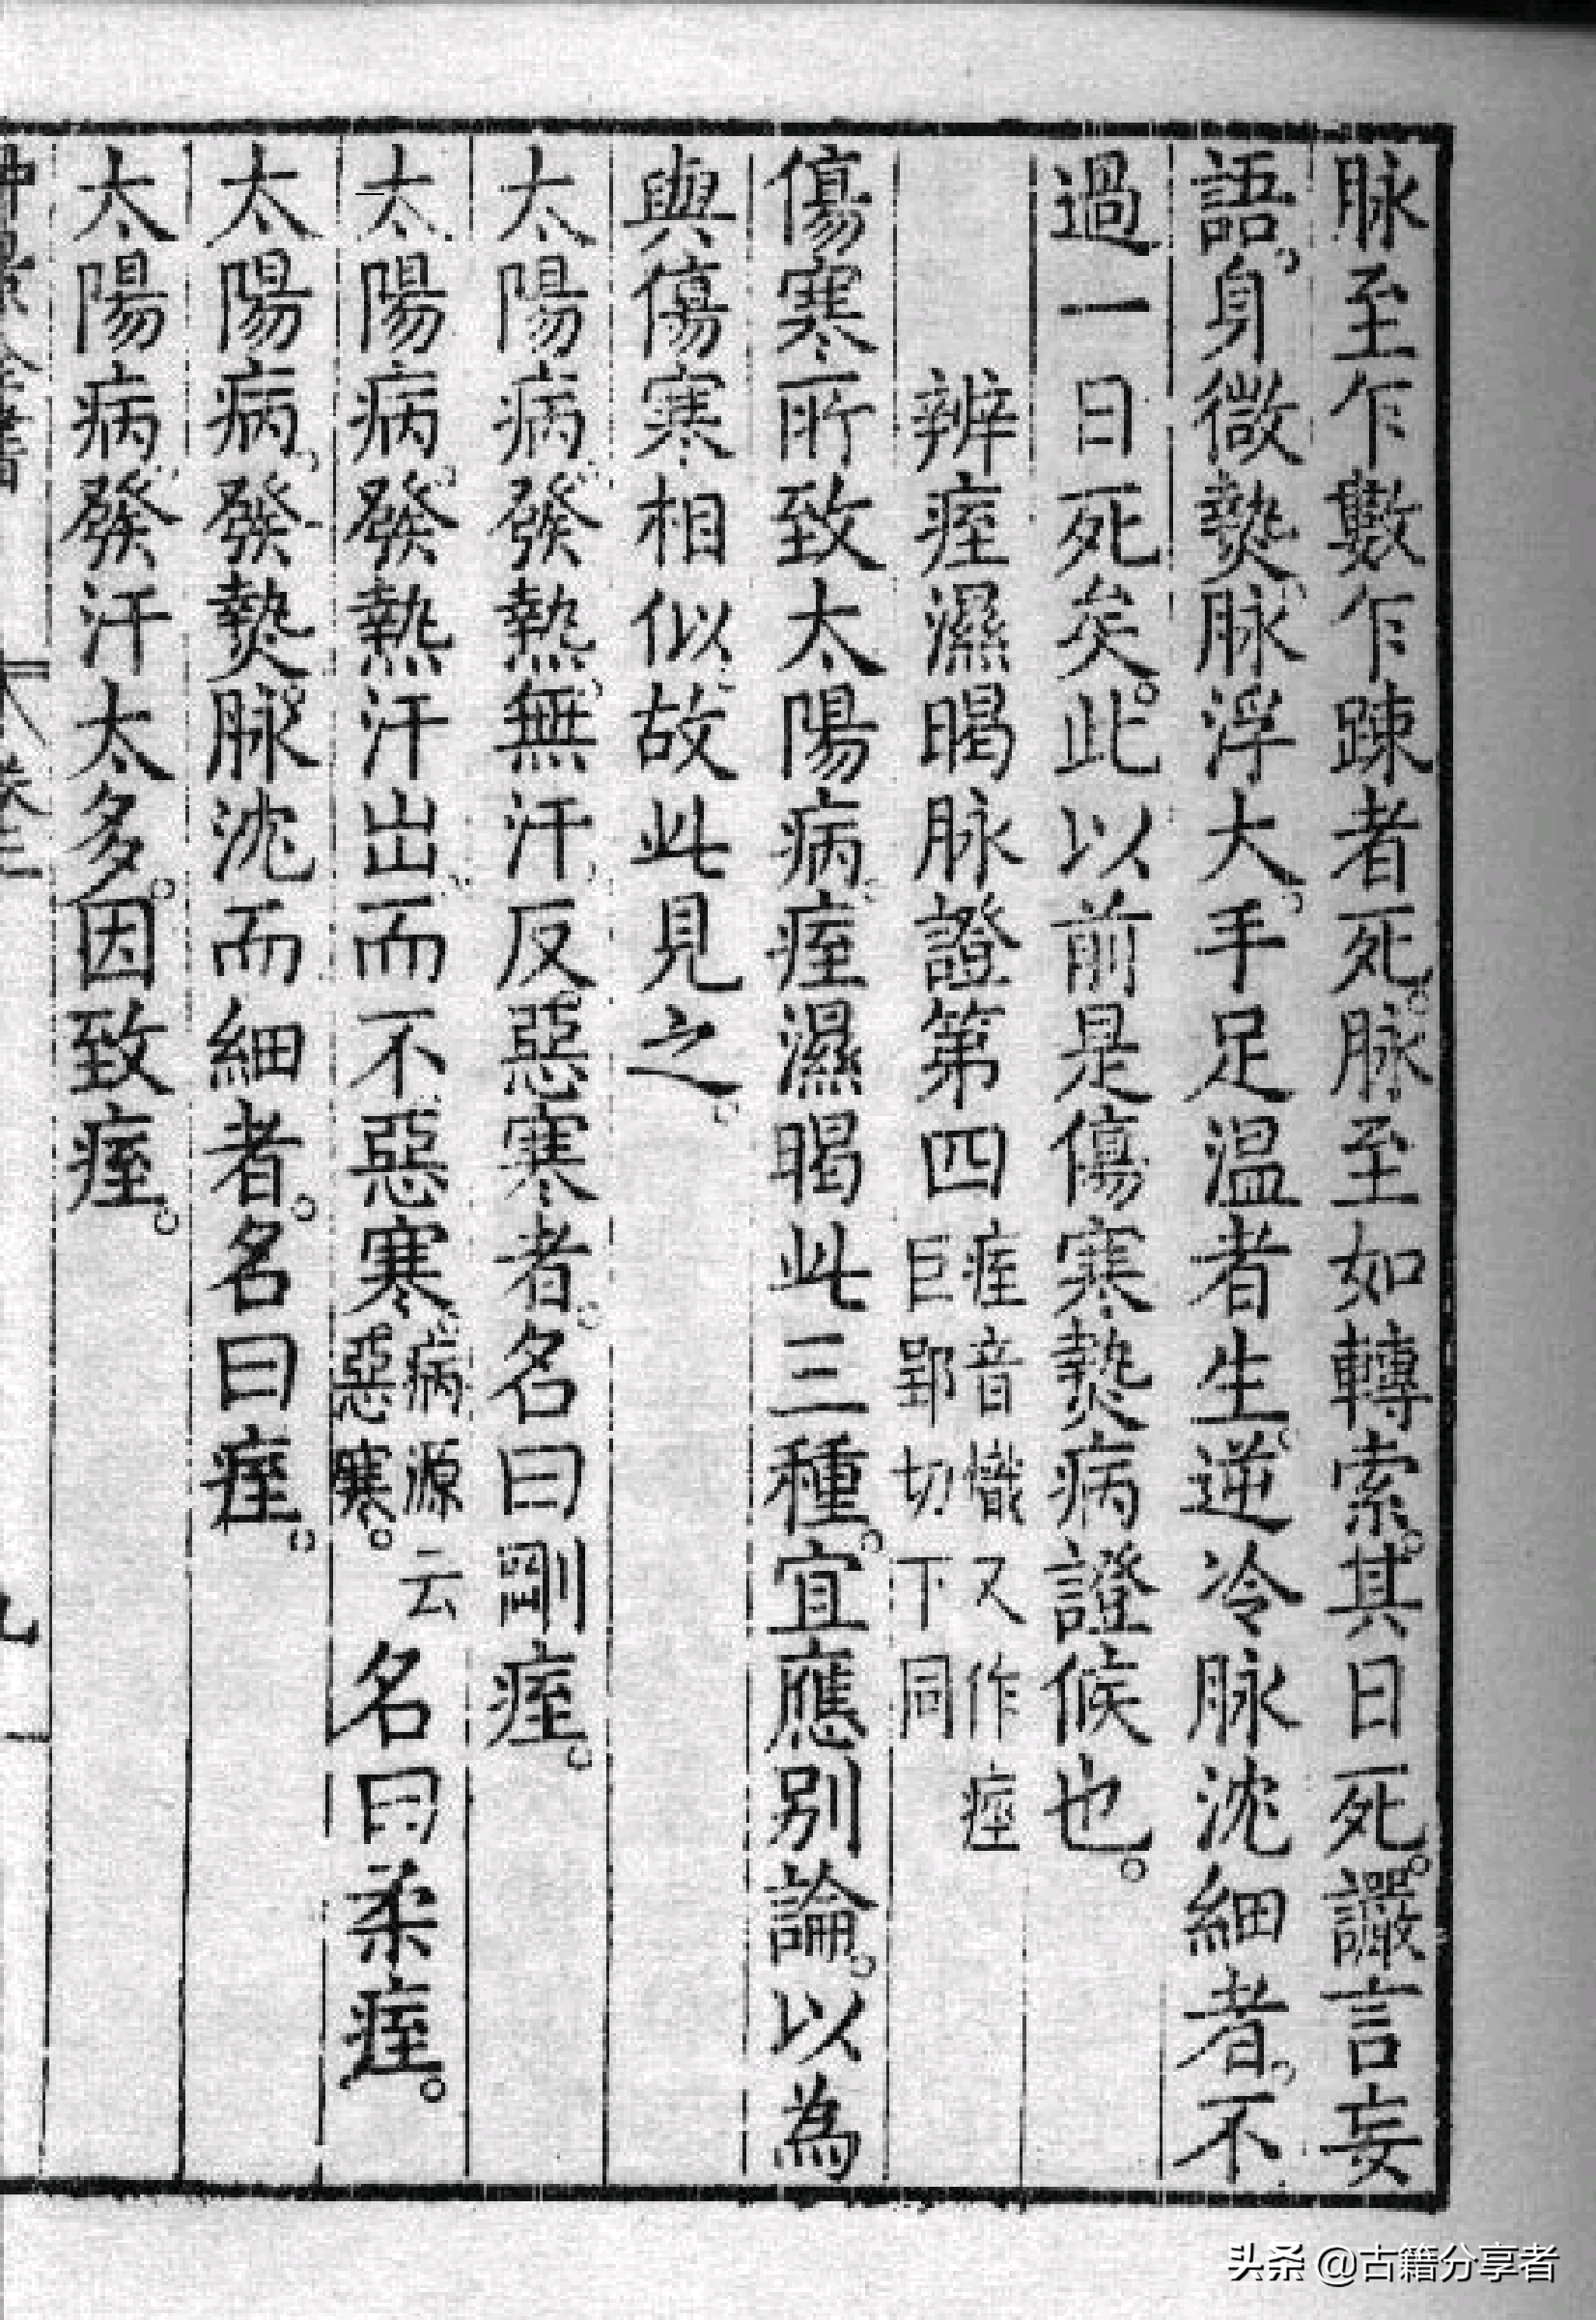 脉至乍數乍踈者死。脉至如轉索。其日死。讝言妄
語。身微熱。脉浮大。手足温者生。逆冷脉沈細者。不
過一日死矣。此以前是傷寒熱病證候也。
辨痓濕暍脉證第四 痓音幟又作痙巨郢切下同
傷寒所致太陽病。痓濕暍此三種。宜應别論。以為
與傷寒相似。故此見之。
太陽病。發熱無汗。反惡寒者。名曰剛痓。
太陽病。發熱汗出。而不惡寒。病源云惡寒。名曰柔痓。
太陽病。發熱。脉沈而細者。名曰痓。
太陽病。發汗太多。因致痓。
頭条 @古籍分享者